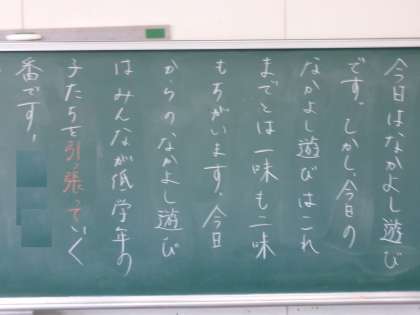 今日はなかよし遊び
です。しかし、今日の
なかよし遊びはこれ
までとは一味も二味
もちがいます。今日
からのなかよし遊び
はみんなが低学年の
子たちを引っ張っていく
番です。